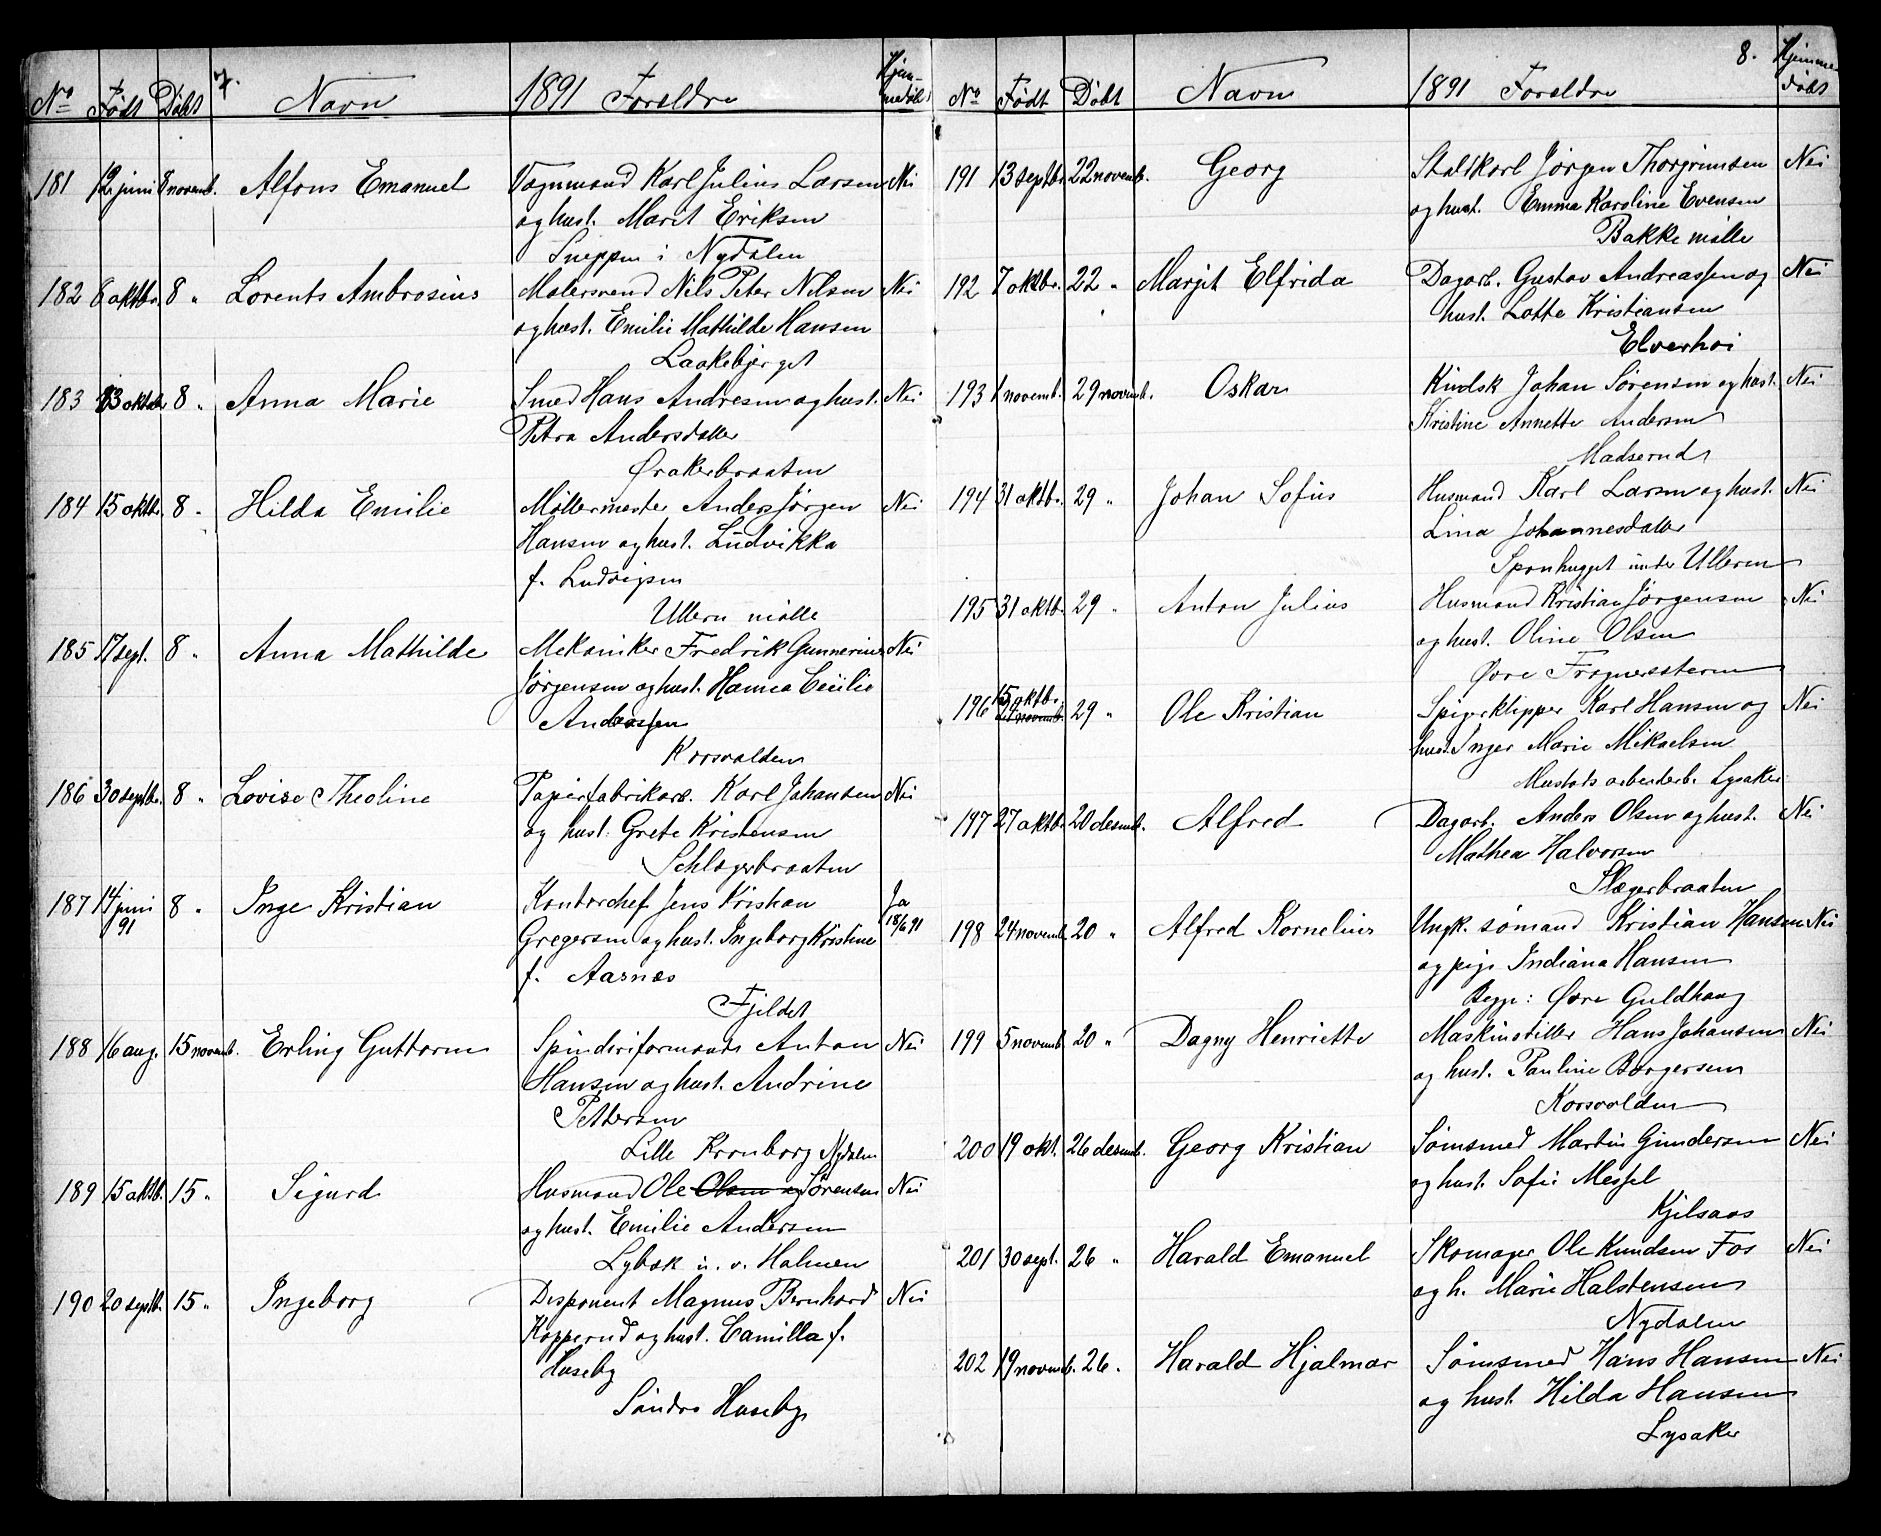 7.
No Født Döbt Navn 1891 Forældre Hjem-
medöbt
181 12 juni 8 novemb. Alfons Emanuel Vognmand Karl Julius Larsen Nei
og hust. Marit Eriksen
Sneppen i Nydalen
182 6 oktbr. 8 " Lorents Ambrosius Malersvend Nils Peter Nilsen Nei
og hust. Emilie Mathilde Hansen
Laakebjerget
183 13 oktbr 8 " Anna Marie Smed Hans Andresen og hust. Nei
Petra Andersdatter
Ørakerbraaten
184 15 oktb. 8 " Hilda Emilie Möllermester Anders Jörgen Nei
Hansen og hust. Ludvikka
f. Ludvigsen
Ullern mölle
185 17 sept. 8 " Anna Mathilde Mekaniker Fredrik Gunnerius Nei
Jörgensen og hust. Hanna Cecilie
Andreassen
Korsvolden
186 30 septbr. 8 " Lovise Theoline Papierfabrikarb. Karl Johansen Nei
og hust. Grete Kristensen
Schlagerbraaten
187 14 juni 91 8 " Inge Kristian Kontorchef Jens Kristian Ja
18/6 91
Gregersen og hust. Ingeborg Kristine
f. Aarnæs
Fjeldet
188 16 aug. 15 novemb. Erling Guttorm Spinderiformand Anton Nei
Hansen og hust. Andrine
Pettersen
Lille Kronborg Nydalen
189 15 oktb. 15 " Sigurd Husmand Ole Olsen og Sörensen Nei
og hust. Emilie Andersen
Lybæk u. v. Holmen
190 20 septb. 15 " Ingeborg Disponent Magnus Bernhard Nei
Kopperud og hust. Camilla f.
Huseby
Söndre Huseby
8.
No Födt Döbt Navn 1891 Forældre Hjemme
döbt
191 13 septbr. 22 novemb. Georg Staldkarl Jörgen Thorgrimsen Nei
og hust. Emma Karoline Evensen
Bakke mölle
192 7 oktbr. 22 " Margit Elfrida Dagarb. Gustav Andreassen og Nei
hust. Lotte Kristiansen
Elverhöi
193 1 novemb. 29 novemb. Oskar Kudsk Johan Sörensen og hust. Nei
Kristine Annette Andersen
Madserud
194 31 oktb. 29 " Johan Sofus Husmand Karl Larsen og hust. Nei
Lina Johannesdatter
Sponhugget under Ullern
195 31 oktb. 29 " Anton Julius Husmand Kristian Jörgensen Nei
og hust. Oline Olsen
Övre Frognersæteren
196 15 oktb. 29 " Ole Kristian Spigerklipper Karl Hansen og Nei
hust. Inger Marie Mikaelsen
Mustads arbeiderb. Lysaker
197 27 oktb. 20 desemb. Alfred Dagarb. Anders Olsen og hust. Nei
Mathea Halvorsen
Slagerbraaten
198 24 novemb. 20 " Alfred Kornelius Ungk. sömand Kristian Hansen Nei
og pige Indiana Hansen
Begge: Övre Guldhaug
199 5 novemb 20 " Dagny Henriette Maskinstiller Hans Johansen Nei
og hust. Pauline Borgersen
Korsvolden
200 19 okt. 26 desemb. Georg Kristian Sömsmed Martin Gundersen Nei
og hust. Sofie Messel
Kjelsaas
201 30 sept. 26 " Harald Emanuel Skomager Ole Knudsen Fos Nei
og h. Marie Halstensen
Nydalen
202 19 novemb. 26 " Harald Hjalmar Sömsmed Hans Hansen Nei
og hust. Hilda Hansen
Lysaker